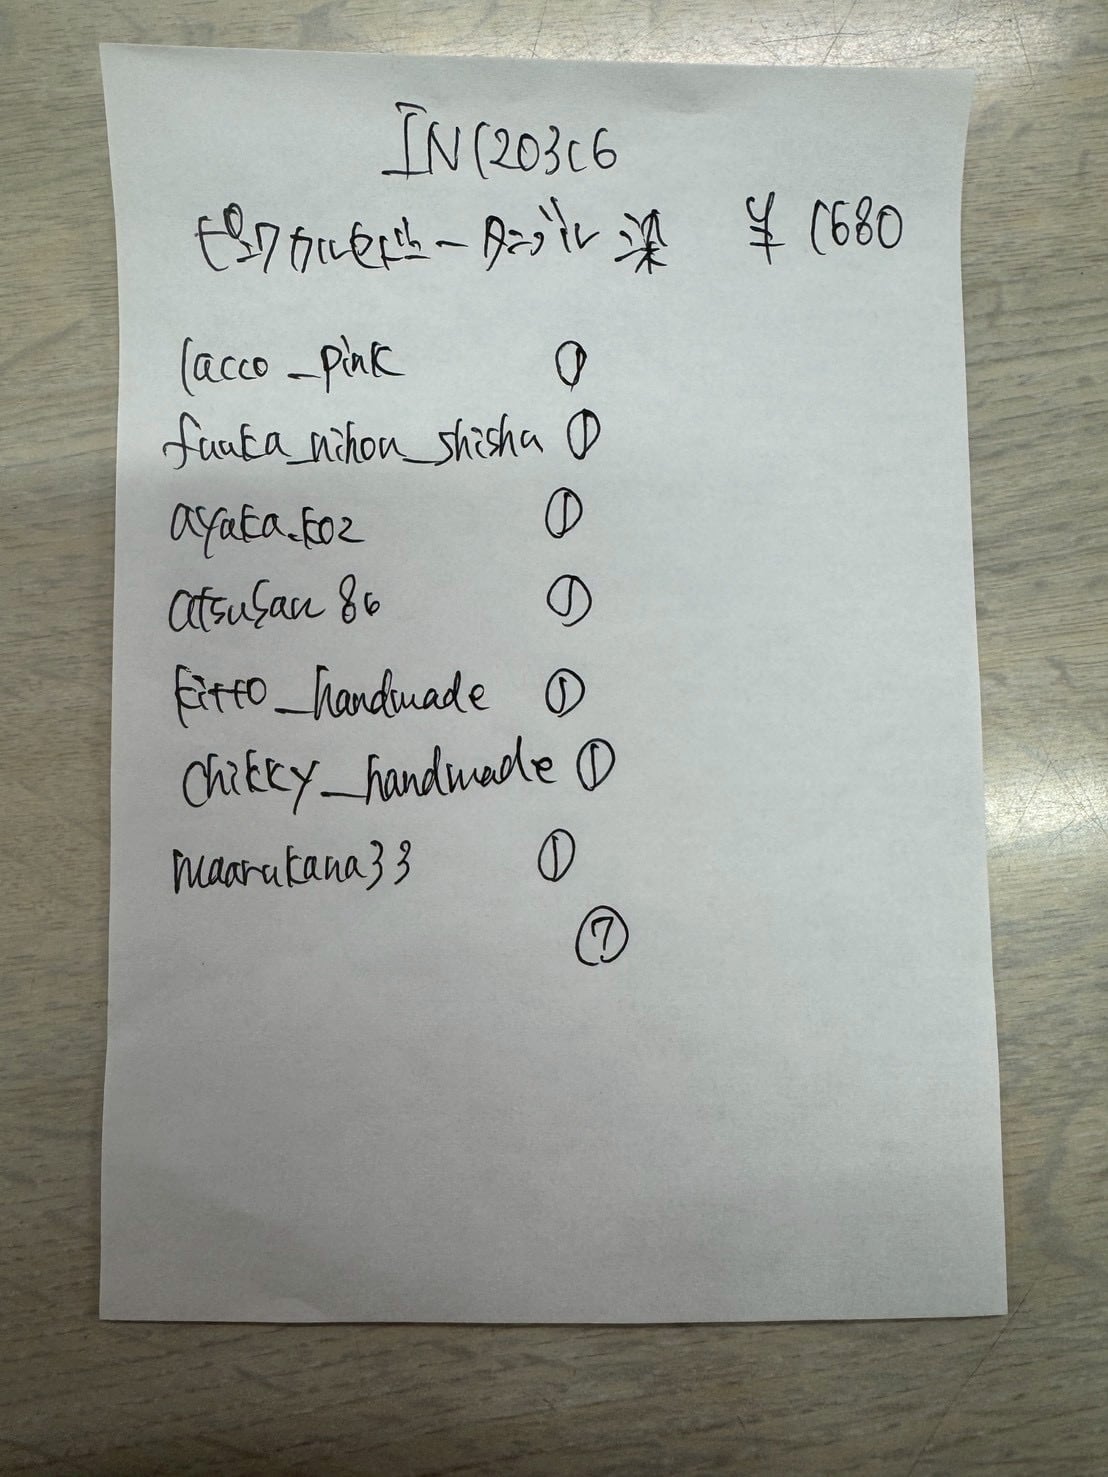 IN120316
¥1680
lacco_pink ①
fuuka_nihon_shisha ①
ayaka.k02 ①
atsusan86 ①
kitto_handmade ①
chikky_handmade ①
maarukana33 ①
⑦